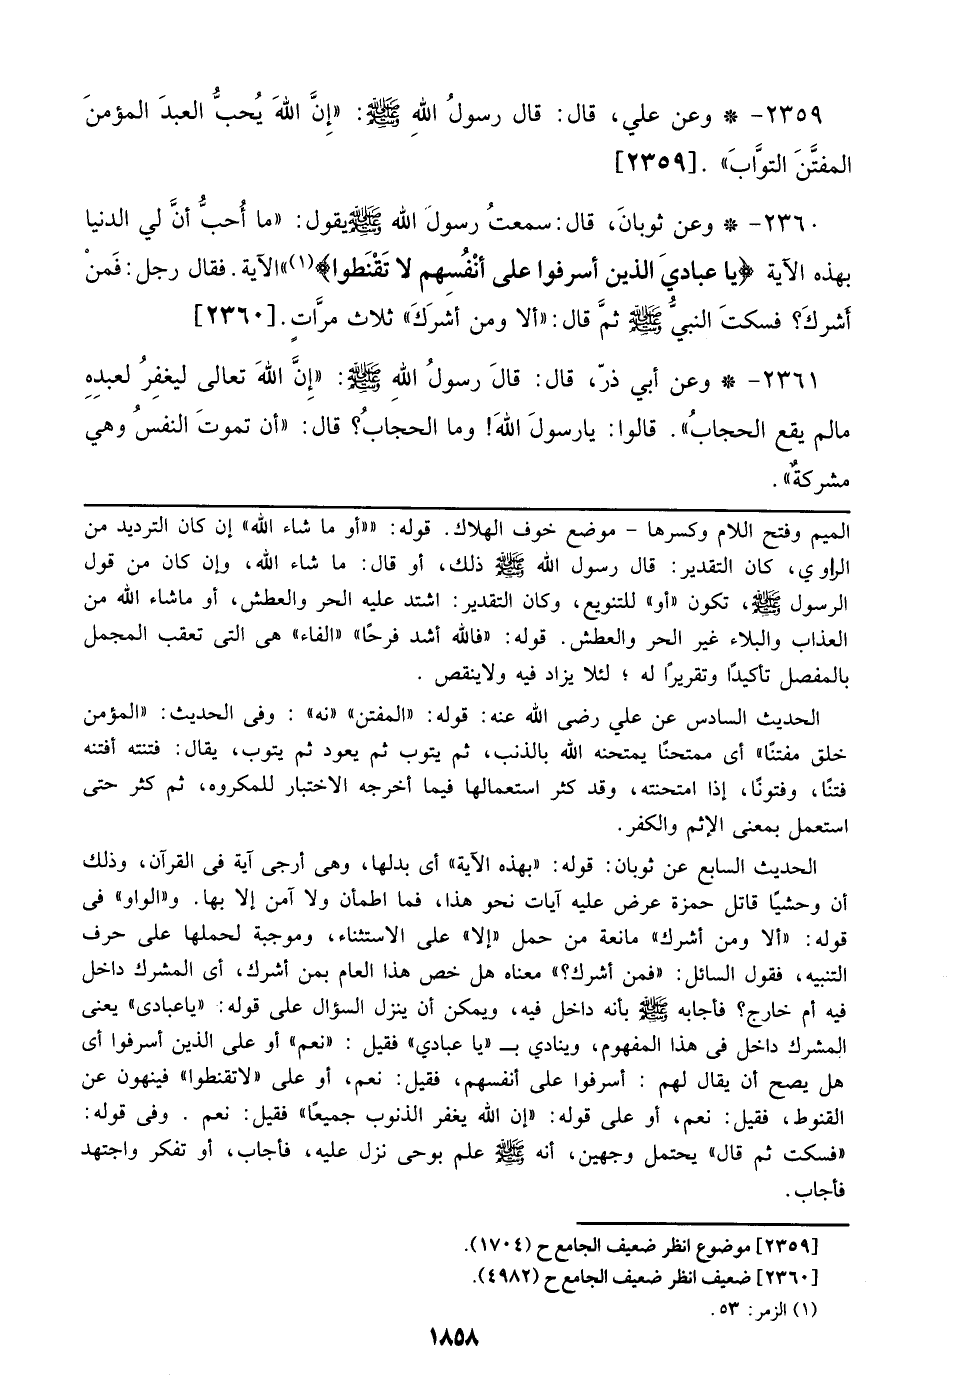 ٢٣٥٩- * وعن علي، قال: قال رسولُ اللهِ ﷺ: «إنَّ اللهَ يُحبُّ العبدَ المؤمنَ
المفتَّنَ التوَّابَ» .[٢٣٥٩]
٢٣٦٠- * وعن ثوبانَ، قال: سمعتُ رسولَ الله ﷺ يقول: «ما أُحبُّ أنَّ لي الدنيا
بهذه الآية ﴿يا عباديَ الذين أسرفوا على أنْفُسِهم لا تَقْنَطوا﴾(١)»الآية. فقال رجل: فَمنْ
أَشركَ؟ فسكتَ النبيُّ ﷺ ثمَّ قال: «ألا ومن أشرَكَ» ثلاث مرَّاتٍ.[٢٣٦٠]
٢٣٦١- * وعن أبي ذرّ، قال: قالَ رسولُ اللهِ ﷺ: «إنَّ اللهَ تعالى ليغفِرُ لعبدِهِ
مالم يقع الحجابُ». قالوا: يارسولَ اللهَ! وما الحجابُ؟ قال: «أن تموتَ النفسُ وهي
مشركةٌ».
الميم وفتح اللام وكسرها - موضع خوف الهلاك. قوله: ««أو ما شاء الله» إن كان الترديد من
الراوي، كان التقدير: قال رسول الله ﷺ ذلك، أو قال: ما شاء الله، وإن كان من قول
الرسول ﷺ، تكون «أو» للتنويع، وكان التقدير: اشتد عليه الحر والعطش، أو ماشاء الله من
العذاب والبلاء غير الحر والعطش. قوله: «فالله أشد فرحًا» «الفاء» هى التى تعقب المجمل
بالمفصل تأكيدًا وتقريرًا له ؛ لئلا يزاد فيه ولاينقص .
الحديث السادس عن علي رضى الله عنه: قوله: «المفتن» «نه» : وفى الحديث: «المؤمن
خلق مفتنًا» أى ممتحنًا يمتحنه الله بالذنب، ثم يتوب ثم يعود ثم يتوب، يقال: فتنته أفتنه
فتنًا، وفتونًا، إذا امتحنته، وقد كثر استعمالها فيما أخرجه الاختبار للمكروه، ثم كثر حتى
استعمل بمعنى الإثم والكفر.
الحديث السابع عن ثوبان: قوله: «بهذه الآية» أى بدلها، وهى أرجى آية فى القرآن، وذلك
أن وحشيًا قاتل حمزة عرض عليه آيات نحو هذا، فما اطمأن ولا آمن إلا بها. و«الواو» فى
قوله: «ألا ومن أشرك» مانعة من حمل «إلا» على الاستثناء، وموجبة لحملها على حرف
التنبيه، فقول السائل: «فمن أشرك؟» معناه هل خص هذا العام بمن أشرك، أى المشرك داخل
فيه أم خارج؟ فأجابه ﷺ بأنه داخل فيه، ويمكن أن ينزل السؤال على قوله: «ياعبادى» يعنى
المشرك داخل فى هذا المفهوم، وينادي بـ «يا عبادي» فقيل : «نعم» أو على الذين أسرفوا أى
هل يصح أن يقال لهم : أسرفوا على أنفسهم، فقيل: نعم، أو على «لاتقنطوا» فينهون عن
القنوط، فقيل: نعم، أو على قوله: «إن الله يغفر الذنوب جميعًا» فقيل: نعم . وفى قوله:
«فسكت ثم قال» يحتمل وجهين، أنه ﷺ علم بوحى نزل عليه، فأجاب، أو تفكر واجتهد
فأجاب.
[٢٣٥٩] موضوع انظر ضعيف الجامع ح (١٧٠٤).
[٢٣٦٠] ضعيف انظر ضعيف الجامع ح (٤٩٨٢).
(١) الزمر: ٥٣.
١٨٥٨